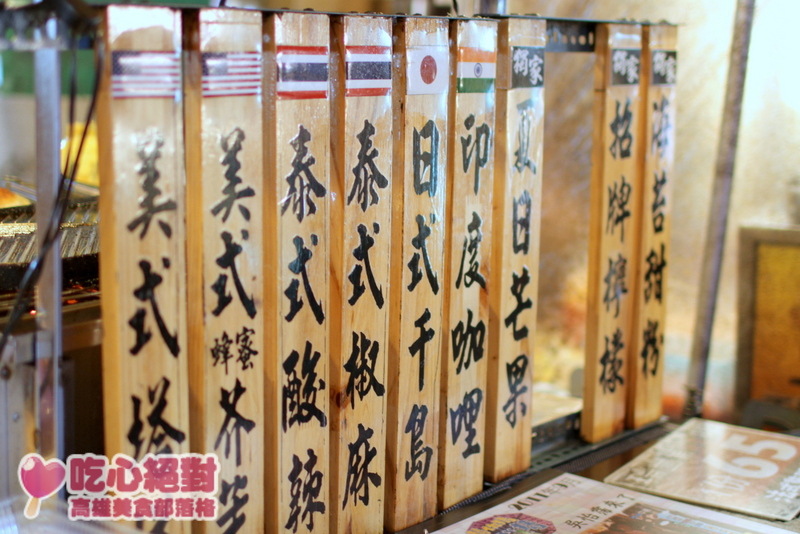 美式塔
美式蜂蜜芥
泰式酸辣
泰式椒麻
日式千島
印度咖哩
獨家
夏日芒果
獨家
招牌檸檬
獨家
海苔甜粉
65
吃心絕對
高雄美食部落格